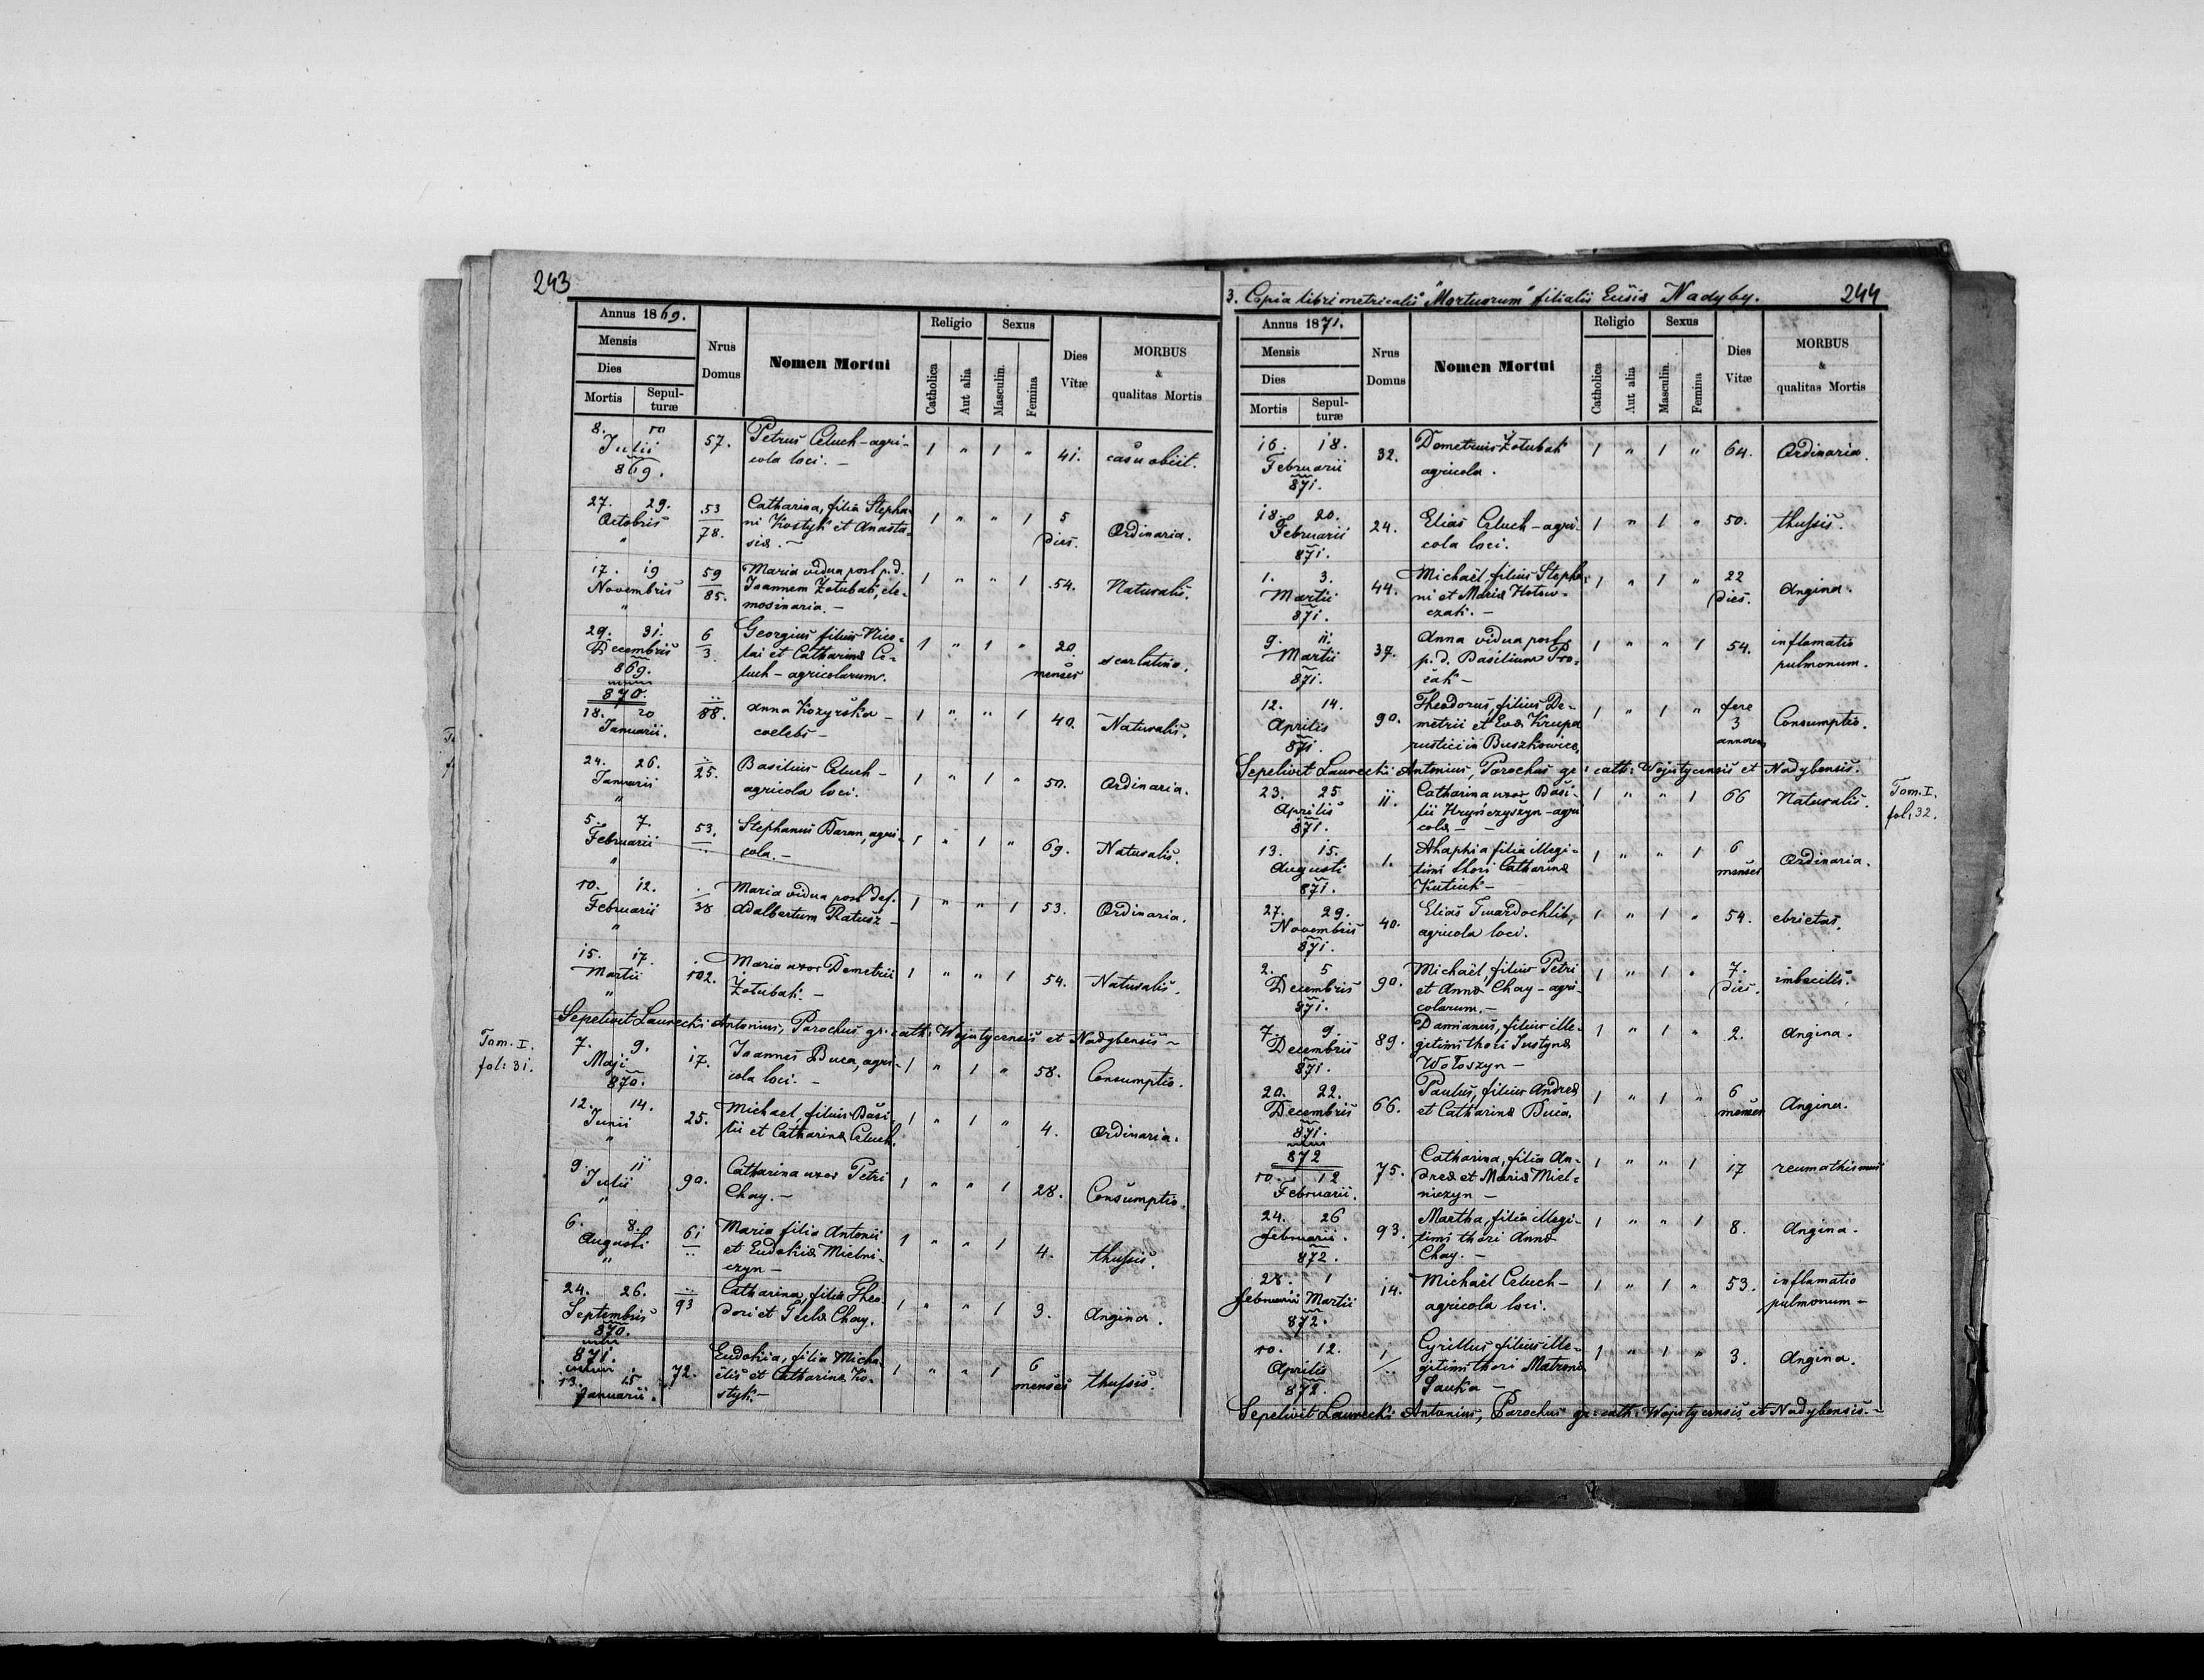 243
Annus 1869.
Mensis
Dies
Mortis
Sepul-
turæ
Nrus
Domus
Nomen Mortui
Religio
Catholica
Aut alia
Sexus
Masculin.
Femina
Dies
Vitæ
MORBUS
&
qualitas Mortis
8. 10
Julii
869.
57.
Petrus Celuch - agri-
cola loci. -
1 " 1 "
41.
casu obiit.
27. 29.
Octobris
"
53
78.
Catharina, filia Stepha-
ni Kostyk et Anasta-
siæ. -
1 " " 1
5
dies.
Ordinaria.
17. 19
Novembris
"
59
85.
Maria vidua post p.d.
Joannem Żołubak, ele-
mosinaria. -
1 " " 1
54.
Naturalis.
29. 31.
Decembris
869.
6
3.
Georgius filius Nico-
lai et Catharinæ Ce-
luch - agricolarum.
1 " 1 "
20.
menses
scarlatina.
870.
18. 20
Januarii.
88.
Anna Kozyrska -
coelebs -
1 " " 1
40.
Naturalis.
24. 26.
Januarii
"
25.
Basilius Celuch -
agricola loci.
1 " 1 "
50.
Ordinaria.
5. 7.
Februarii
"
53.
Stephanus Baran, agri-
cola. -
1 " 1 "
69.
Naturalis.
10. 12.
Februarii
"
38
Maria vidua post def.
Adalbertum Ratusz -
1 " " 1
53.
Ordinaria.
15. 17.
Martii
"
102.
Maria uxor Demetrii
Żołubak. -
1 " " 1
54.
Naturalis.
Sepelivit Laurecki Antonius, Parochus gr: cath: Wojutycensis et Nadybensis -
Tom. I.
fol: 31.
7. 9.
Maji
870.
17.
Joannes Buca, agri-
cola loci. -
1 " 1 "
58.
Consumptio.
12. 14.
Junii
"
25.
Michael, filius Basi-
lii et Catharinæ Celuch.
1 " 1 "
4.
Ordinaria.
9. 11
Julii
"
90.
Catharina uxor Petri
Chay. -
1 " " 1
28.
Consumptio.
6. 8.
Augusti
"
61
Maria filia Antonii
et Eudokiæ Mielni-
czyn -
1 " " 1
4.
thussis.
24. 26.
Septembris
870.
93
Catharina, filia Theo-
dori et Teclæ Chay.
1 " " 1
3.
Angina.
871.
13. 15
Januarii.
72.
Eudokia, filia Micha-
ëlis et Catharinæ Ko-
styk. -
1 " " 1
6
menses
thussis.
3. Copia libri metricalis "Mortuorum" filialis Ecclsiæ Nadyby.
244
Annus 1871.
Mensis
Dies
Mortis
Sepul-
turæ
Nrus
Domus
Nomen Mortui
Religio
Catholica
Aut alia
Sexus
Masculin.
Femina
Dies
Vitæ
MORBUS
&
qualitas Mortis
16. 18.
Februarii
871.
32.
Demetrius Żołubak
agricola.
1 " 1 "
64.
Ordinaria.
18. 20.
Februarii
871.
24.
Elias Celuch - agri-
cola loci.
1 " 1 "
50.
thussis.
1. 3.
Martii
871.
44.
Michaël, filius Stepha-
ni et Mariæ Hołow-
czak. -
1 " 1 "
22
dies.
Angina.
9. 11.
Martii
871.
37.
Anna vidua post
p.d. Basilium Pro-
cak -
1 " " 1
54.
inflamatio
pulmonum.
12. 14.
Aprilis
871.
90.
Theodorus, filius De-
metrii et Evæ Krupa
rustici in Buszkowice,
1 " 1 "
fere
3
annorum
Consumptio.
Sepelivit Laurecki Antonius, Parochus gr: cath: Wojutycensis et Nadybensis.
Tom. I.
fol: 32.
23. 25
Aprilis
871.
11.
Catharina uxor Basi-
lii Hryńczyszyn - agri-
colæ -
1 " " 1
66
Naturalis.
13. 15.
Augusti
871.
1.
Ahaphia filia illegi-
timi thori Catharinæ
Kutiuk -
1 " " 1
6
menses
Ordinaria.
27. 29.
Novembris
871.
40.
Elias Twardochlib,
agricola loci.
1 " 1 "
54.
ebrietas.
2. 5
Decembris
871.
90.
Michaël, filius Petri
et Annæ Chay - agri-
colarum. -
1 " 1 "
7.
dies.
imbecills.
7. 9.
Decembris
871.
89.
Damianus, filius ille-
gitimi thori Justynæ
Wołoszyn -
1 " 1 "
2.
Angina.
20. 22.
Decembris
871.
66.
Paulus, filius Andreæ
et Catharinæ Buca.
1 " 1 "
6
menses
Angina.
872
10. 12
Februarii.
75.
Catharina, filia An-
dreæ et Mariæ Miel-
niczyn -
1 " " 1
17
reumathismus
24. 26
februarii.
872.
93.
Martha, filia illegi-
timi thori Annæ
Chay. -
1 " " 1
8.
Angina.
28. 1
februarii Martii
872.
14.
Michaël Celuch -
agricola loci.
1 " 1 "
53.
inflamatio
pulmonum -
10. 12.
Aprilis
872.
1
Cyrillus filius ille-
gitimi thori Matronæ
Sauka -
1 " 1 "
3.
Angina.
Sepelivit Laurecki Antonius, Parochus gr: cath: Wojutycensis et Nadybensis. -